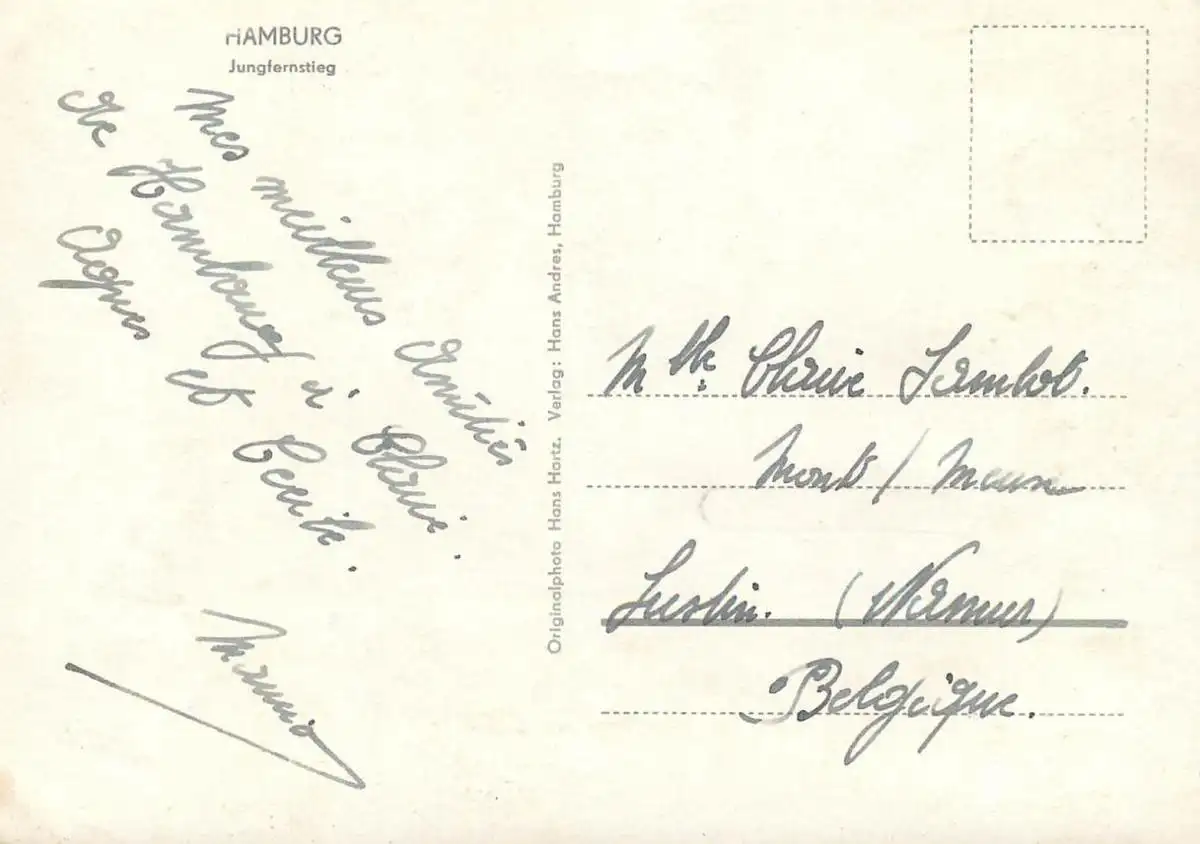 HAMBURG
Jungfernstieg
Mes meilleurs Amitiés
de Hambourg à Claire.
Agnes et Cecile.
Originalphoto Hans Hartz. Verlag: Hans Andres, Hamburg
Mlle. Claire Lambot.
Mont / Meuse
Lustin. (Namur)
Belgique.